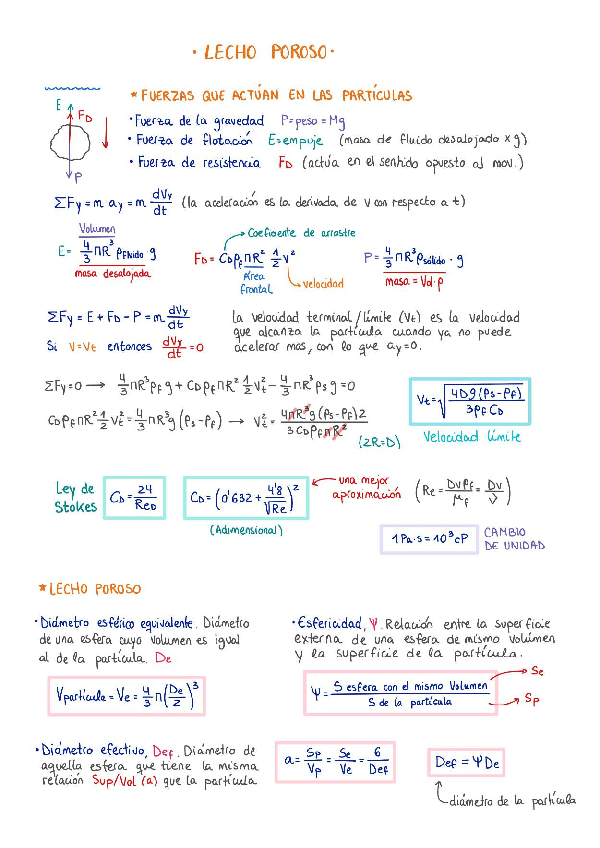 · LECHO POROSO ·
* FUERZAS QUE ACTÚAN EN LAS PARTÍCULAS
E
FD
P
· Fuerza de la gravedad P=peso=Mg
· Fuerza de flotación E=empuje (masa de fluido desalojado x g)
· Fuerza de resistencia FD (actúa en el sentido opuesto al mov.)
ΣFy = m ay = m dVy/dt (la aceleración es la derivada de v con respecto a t)
Volumen
E = 4/3 πR³ ρFluido g
masa desalojada
Coeficiente de arrastre
FD = CD ρf πR² 1/2 v²
Área frontal
velocidad
P = 4/3 πR³ ρsólido · g
masa = Vol·ρ
ΣFy = E + FD - P = m dVy/dt
Si V=Vt entonces dVy/dt = 0
la velocidad terminal/límite (Vt) es la velocidad
que alcanza la partícula cuando ya no puede
acelerar mas, con lo que ay=0.
ΣFy=0 → 4/3 πR³ ρf g + CD ρf πR² 1/2 Vt² - 4/3 πR³ ρs g = 0
CD ρf πR² 1/2 Vt² = 4/3 πR³ g (ρs-ρf) → Vt² = 4πR³ g (ρs-ρf) 2 / 3 CD ρf πR²
(2R=D)
Vt = √(4Dg(ρs-ρf) / 3ρf CD)
Velocidad límite
Ley de
Stokes
CD = 24/ReD
CD = (0'632 + 4'8/√Re)²
(Adimensional)
una mejor
aproximación
(Re = Dvρf/μf = Dv/ν)
1 Pa·s = 10³ cP
CAMBIO
DE UNIDAD
* LECHO POROSO
· Diámetro esférico equivalente. Diámetro
de una esfera cuyo volumen es igual
al de la partícula. De
Vpartícula = Ve = 4/3 π (De/2)³
· Esfericidad, Ψ. Relación entre la superficie
externa de una esfera de mismo volúmen
y la superficie de la partícula.
Ψ = S esfera con el mismo Volumen / S de la partícula
Se
Sp
· Diámetro efectivo, Def. Diámetro de
aquella esfera que tiene la misma
relación Sup/Vol (a) que la partícula
a = Sp/Vp = Se/Ve = 6/Def
Def = ΨDe
diámetro de la partícula